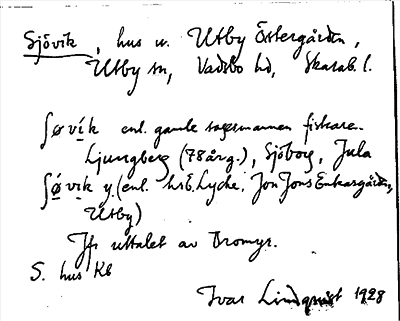 Sjövik, hus u. Utby Östergården,
Utby sn, Vadsbo hd, Skarab. l.
ʃøvík enl. gamle sagesmannen fiskare
Ljungberg (78 årg.), Sjöborg, Jula
ʃǿvik y. (enl. hrE. Lycke, Jon Jons Enkasgården,
Utby)
Jfr uttalet av Bromyr.
S. hus Kb
Ivar Lindquist 1928